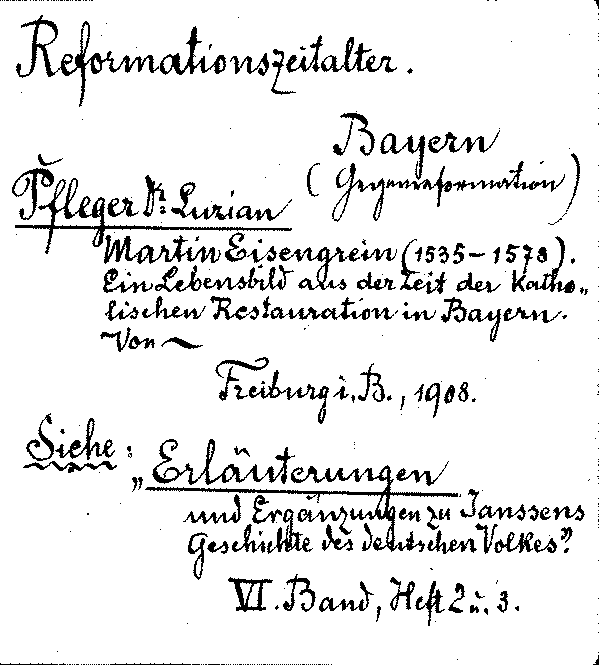 Reformationszeitalter.
Bayern
(Gegenreformation)
Pfleger Dr. Luzian
Martin Eisengrein (1535-1578).
Ein Lebensbild aus der Zeit der Katho„
lischen Restauration in Bayern.
Von ~
Freiburg i. B., 1908.
Siehe:
„Erläuterungen
und Ergänzungen zu Janssens
Geschichte des deutschen Volkes."
VI. Band, Heft 2 u. 3.